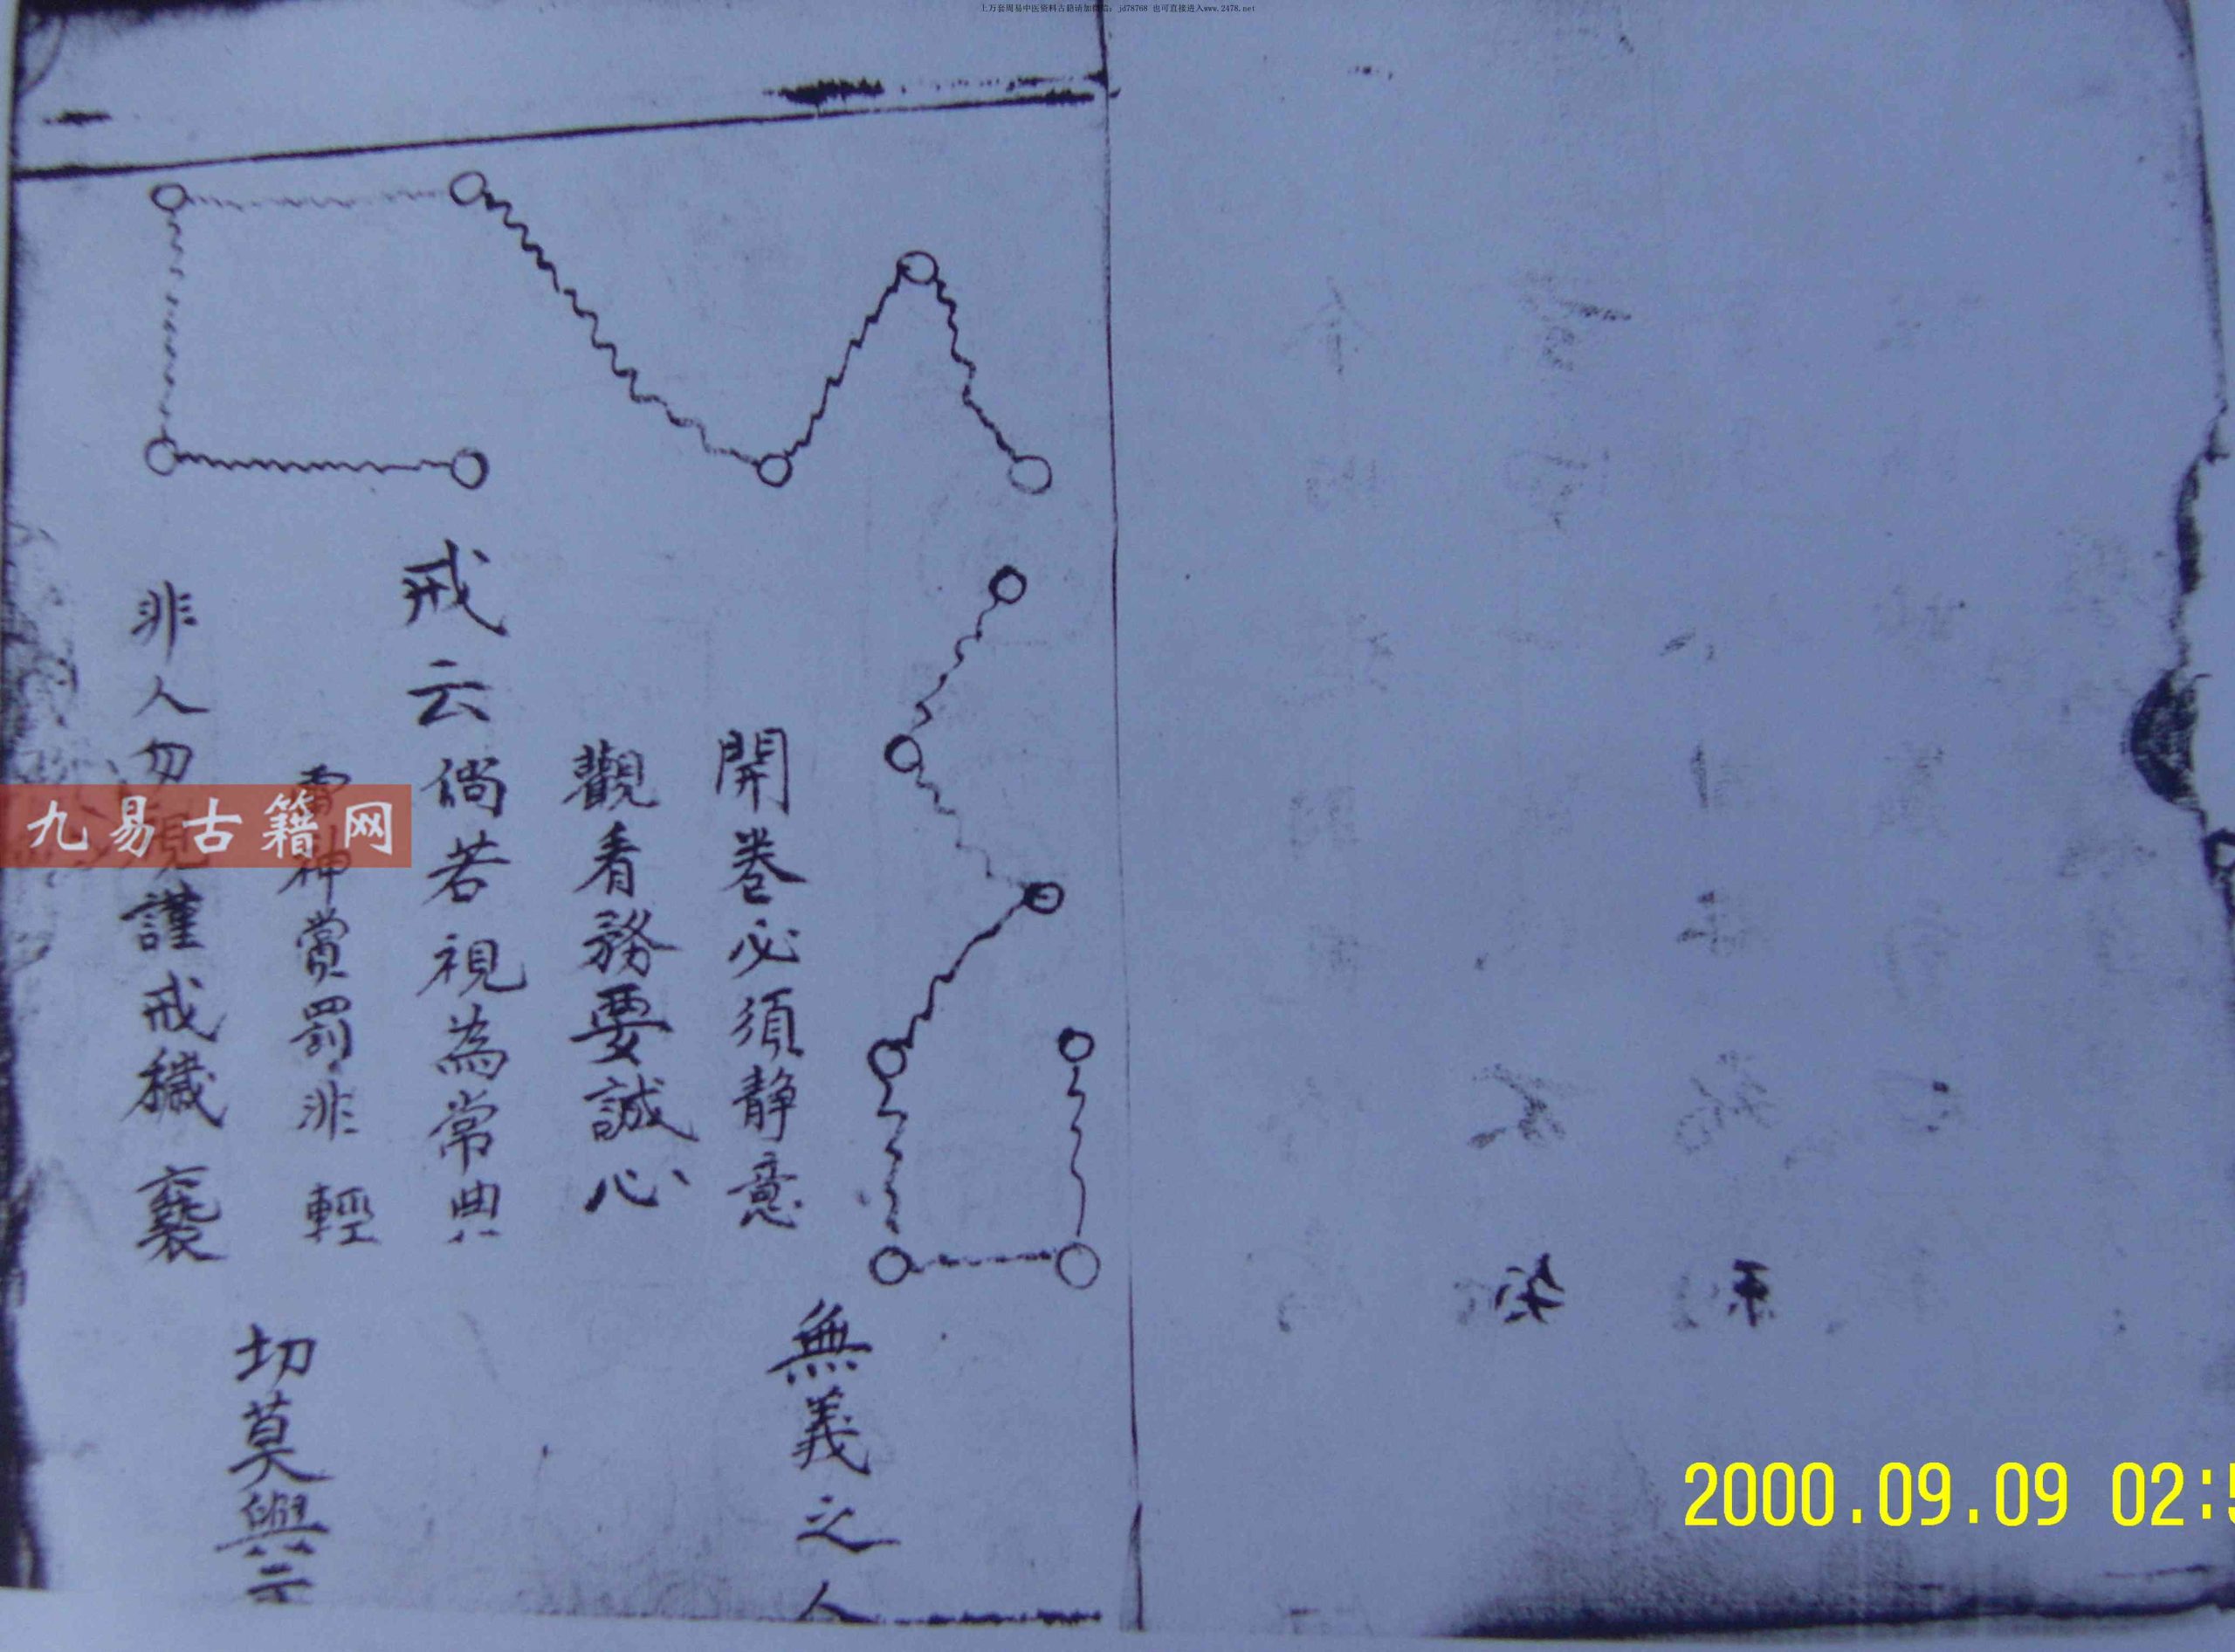 上万套周易中医资料古籍请加微信：jd78768 也可直接进入www.2478.net
開卷必須静意
觀看務要誠心
戒云倘若視為常典
雷神賞罰非輕
非人勿視謹戒穢褻
無義之人
切莫與云
九易古籍网
2000.09.09 02:5